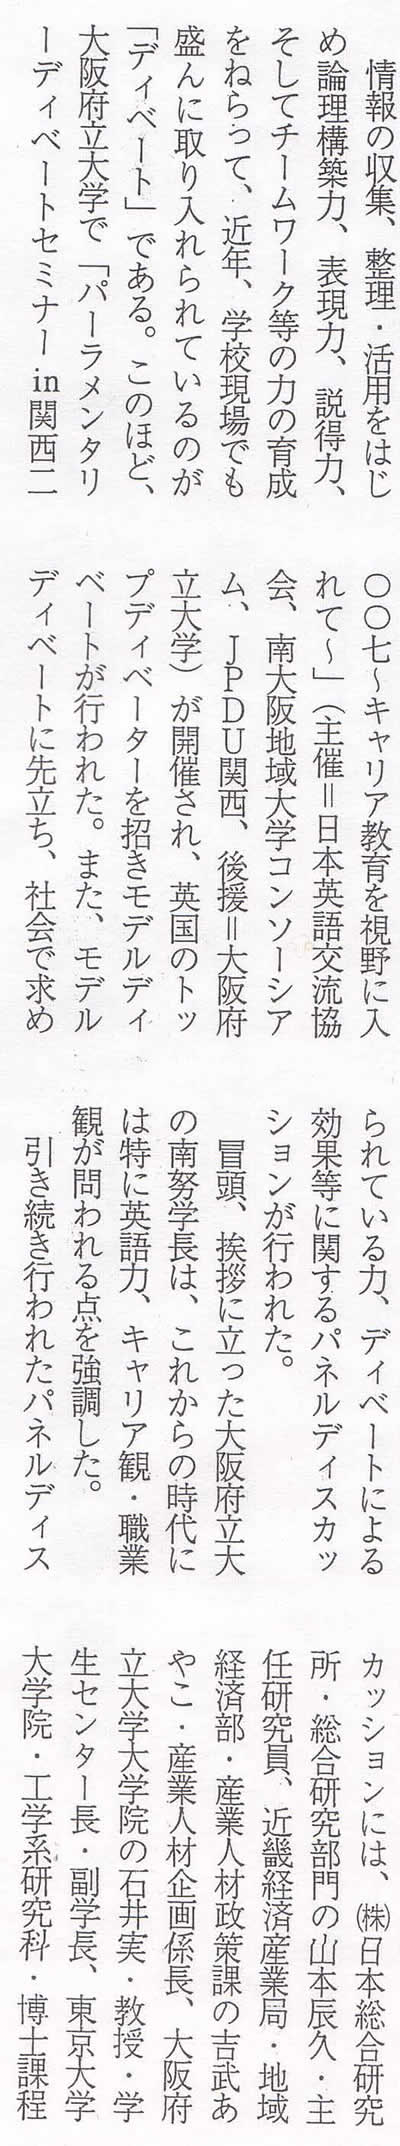 情報の収集、整理・活用をはじ
め論理構築力、表現力、説得力、
そしてチームワーク等の力の育成
をねらって、近年、学校現場でも
盛んに取り入れられているのが
「ディベート」である。このほど、
大阪府立大学で「パーラメンタリ
ーディベートセミナーin関西二
〇〇七～キャリア教育を視野に入
れて～」（主催＝日本英語交流協
会、南大阪地域大学コンソーシア
ム、JPDU関西、後援＝大阪府
立大学）が開催され、英国のトッ
プディベーターを招きモデルディ
ベートが行われた。また、モデル
ディベートに先立ち、社会で求め
られている力、ディベートによる
効果等に関するパネルディスカッ
ションが行われた。
冒頭、挨拶に立った大阪府立大
の南努学長は、これからの時代に
は特に英語力、キャリア観・職業
観が問われる点を強調した。
引き続き行われたパネルディス
カッションには、㈱日本総合研究
所・総合研究部門の山本辰久・主
任研究員、近畿経済産業局・地域
経済部・産業人材政策課の吉武あ
やこ・産業人材企画係長、大阪府
立大学大学院の石井実・教授・学
生センター長・副学長、東京大学
大学院・工学系研究科・博士課程